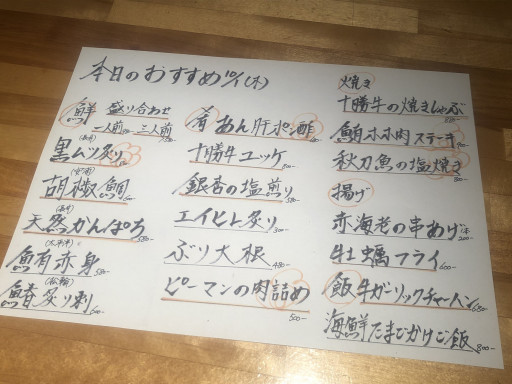 本日のおすすめ 10/1(木)
鮮 盛り合わせ
二人前 三人前
黒ムツ炙り
胡椒鯛
天然かんぱち
580-
(太平洋)
鮪赤身
580-
鰆炙り刺
600-
肴 あん肝ポン酢
十勝牛ユッケ
銀杏の塩煎り
エイヒレ炙り
300-
ぶり大根
480-
ピーマンの肉詰め
500-
焼き
十勝牛の焼きしゃぶ
鮪ホホ肉ステーキ
秋刀魚の塩焼き
揚げ
赤海老の串あげ
牡蠣フライ
600-
飯 牛ガーリックチャーハン
650-
海鮮たまごかけご飯
800-